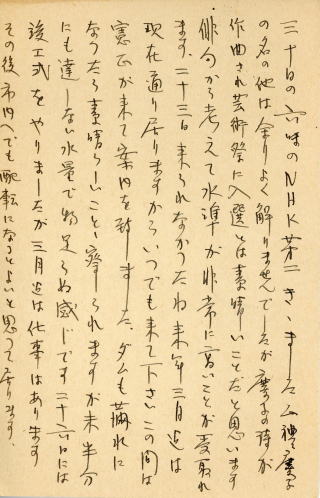 三十日の六味のNHK第二きゝました
の名の他は余りよく解りませんでしたが慶子の詩が
作曲され芸術祭に入選とは素晴しいことだと思います
俳句から考えて水準が非常に高いことが受取れ
ます、二十三日来られなかったわ来年三月迄は
現在通り居りますからいつでも来て下さいこの間は
憲正が来て案内を致しました、ダムも満水に
なったら素晴らしいことゝ察しられますが未半分
にも達しない水量で物足らぬ感じです二十六日には
竣工式をやりましたが三月迄は仕事はあります
その後市内へでも配転になるとよいと思って居ります